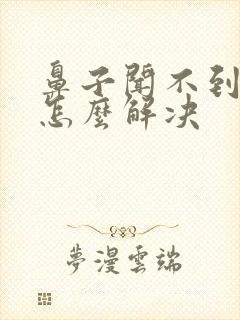 鼻子聞不到
怎麼解决
夢漫雲端